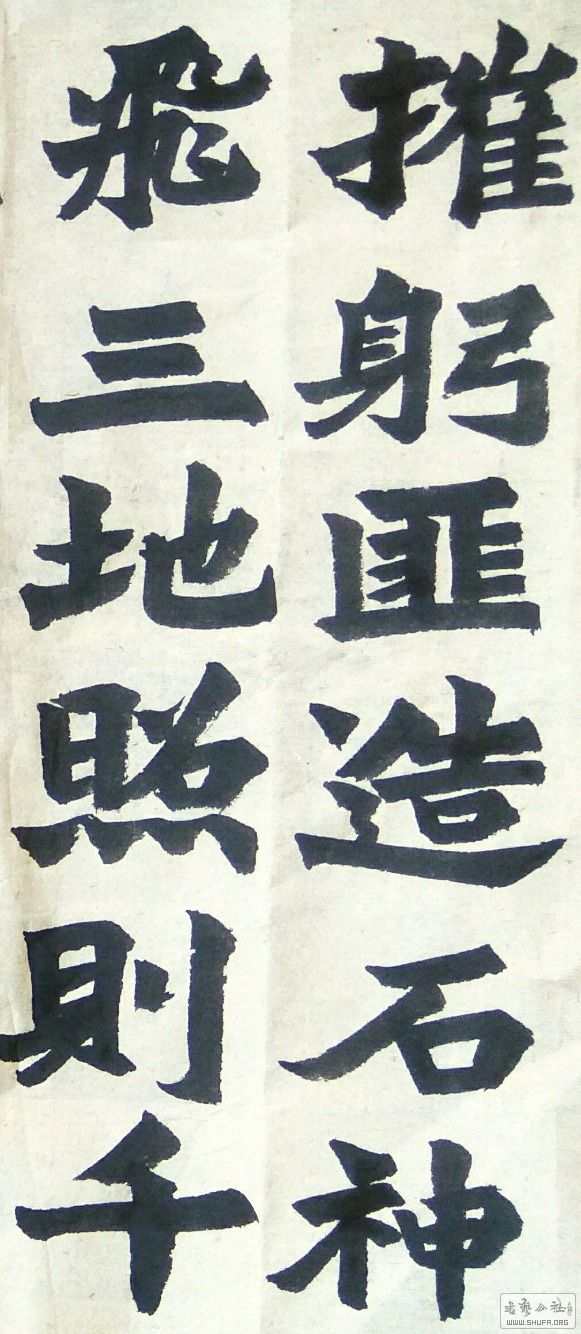 摧躬匪造石神
飛三地照則千
书艺公社
WWW.SHUFA.ORG